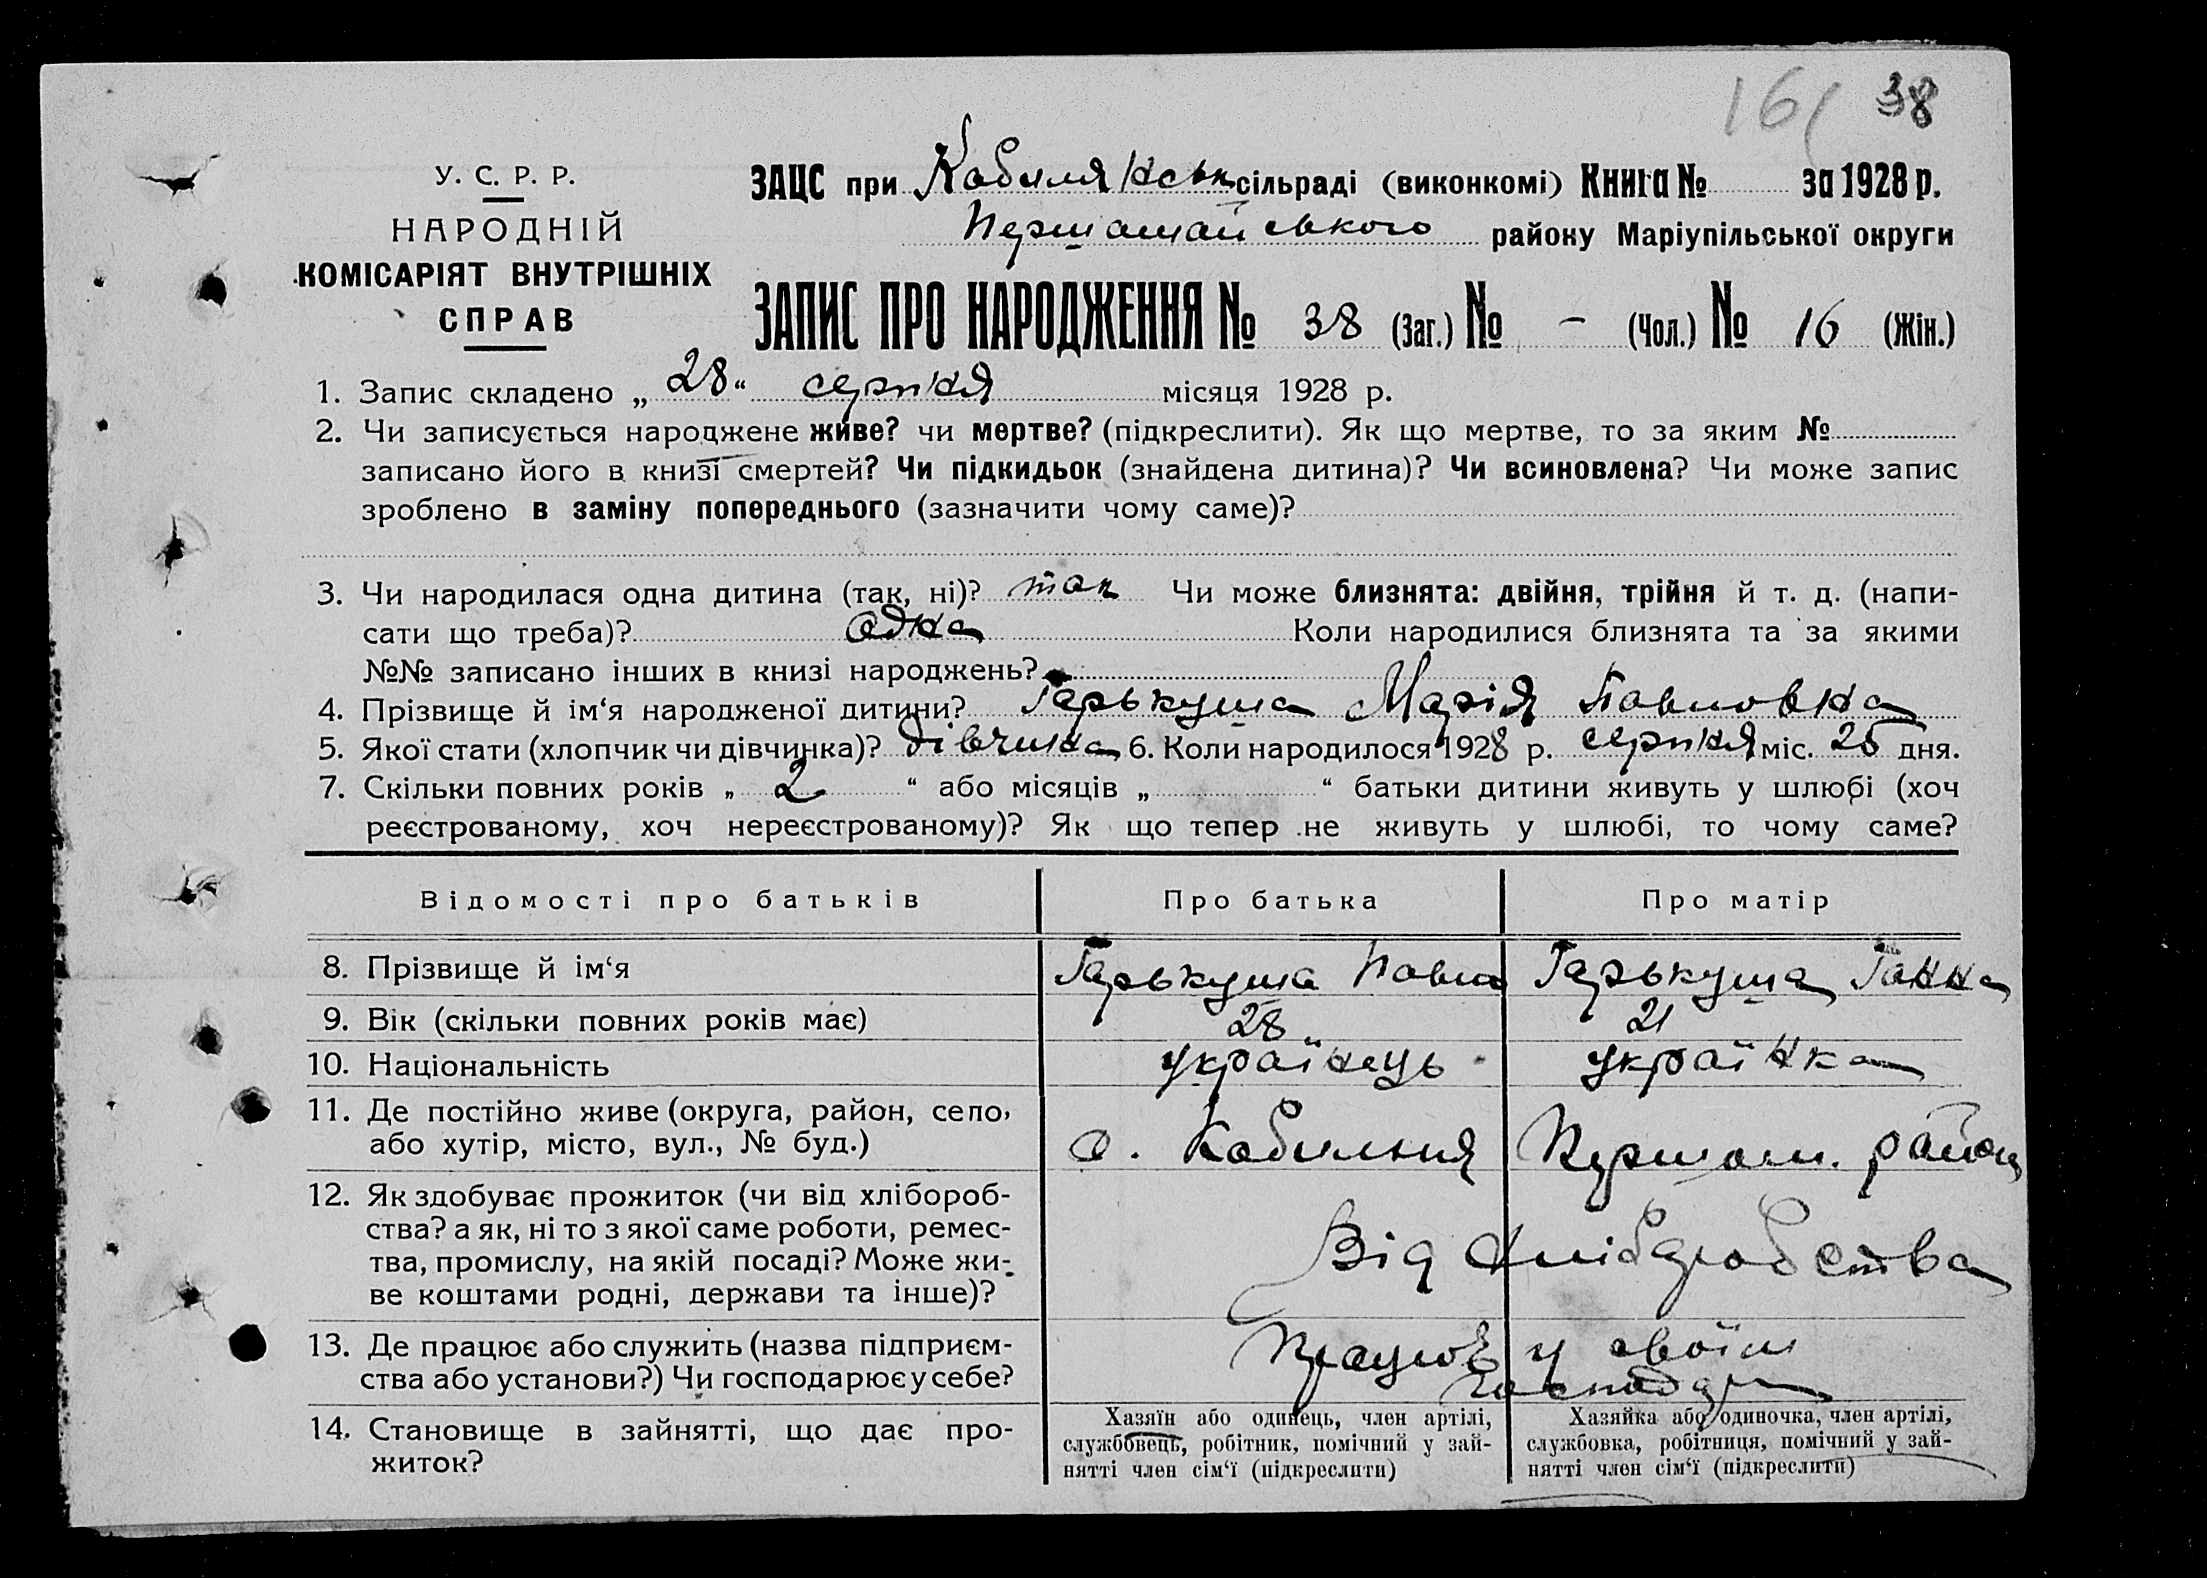 16( 38
У. С. Р. Р.
НАРОДНІЙ
КОМІСАРІЯТ ВНУТРІШНІХ
СПРАВ
ЗАЦС при Кобилянськ сільраді (виконкомі) Книга № за 1928 р.
Першамайського району Маріупільської округи
ЗАПИС ПРО НАРОДЖЕННЯ № 38 (Заг.) № – (Чол.) № 16 (Жін.)
1. Запис складено „ 28 “ серпня місяця 1928 р.
2. Чи записується народжене живе? чи мертве? (підкреслити). Як що мертве, то за яким №
записано його в книзі смертей? Чи підкидьок (знайдена дитина)? Чи всиновлена? Чи може запис
зроблено в заміну попереднього (зазначити чому саме)?
3. Чи народилася одна дитина (так, ні)? так Чи може близнята: двійня, трійня й т. д. (напи-
сати що треба)? одна Коли народилися близнята та за якими
№№ записано інших в книзі народжень?
4. Прізвище й ім‘я народженої дитини? Гарькуша Марія Павловна
5. Якої стати (хлопчик чи дівчинка)? дівчинка 6. Коли народилося 1928 р. серпня міс. 25 дня.
7. Скільки повних років „ 2 “ або місяців „ “ батьки дитини живуть у шлюбі (хоч
реєстрованому, хоч нереєстрованому)? Як що тепер не живуть у шлюбі, то чому саме?
Відомості про батьків Про батька Про матір
8. Прізвище й ім‘я Гарькуша Павло Гарькуша Ганна
9. Вік (скільки повних років має) 28 21
10. Національність українець українка
11. Де постійно живе (округа, район, село,
або хутір, місто, вул., № буд.) с. Кобильня Першом. район
12. Як здобуває прожиток (чи від хлібороб-
ства? а як, ні то з якої саме роботи, ремес-
тва, промислу, на якій посаді? Може жи-
ве коштами родні, держави та інше)? Від хліборобства
13. Де працює або служить (назва підприєм-
ства або установи?) Чи господарює у себе? Працює у своїм
господар
14. Становище в зайнятті, що дає про-
житок?
Хазяїн або одинець, член артілі,
службовець, робітник, помічний у зай-
нятті член сім‘ї (підкреслити)
Хазяйка або одиночка, член артілі,
службовка, робітниця, помічний у зай-
нятті член сім‘ї (підкреслити)